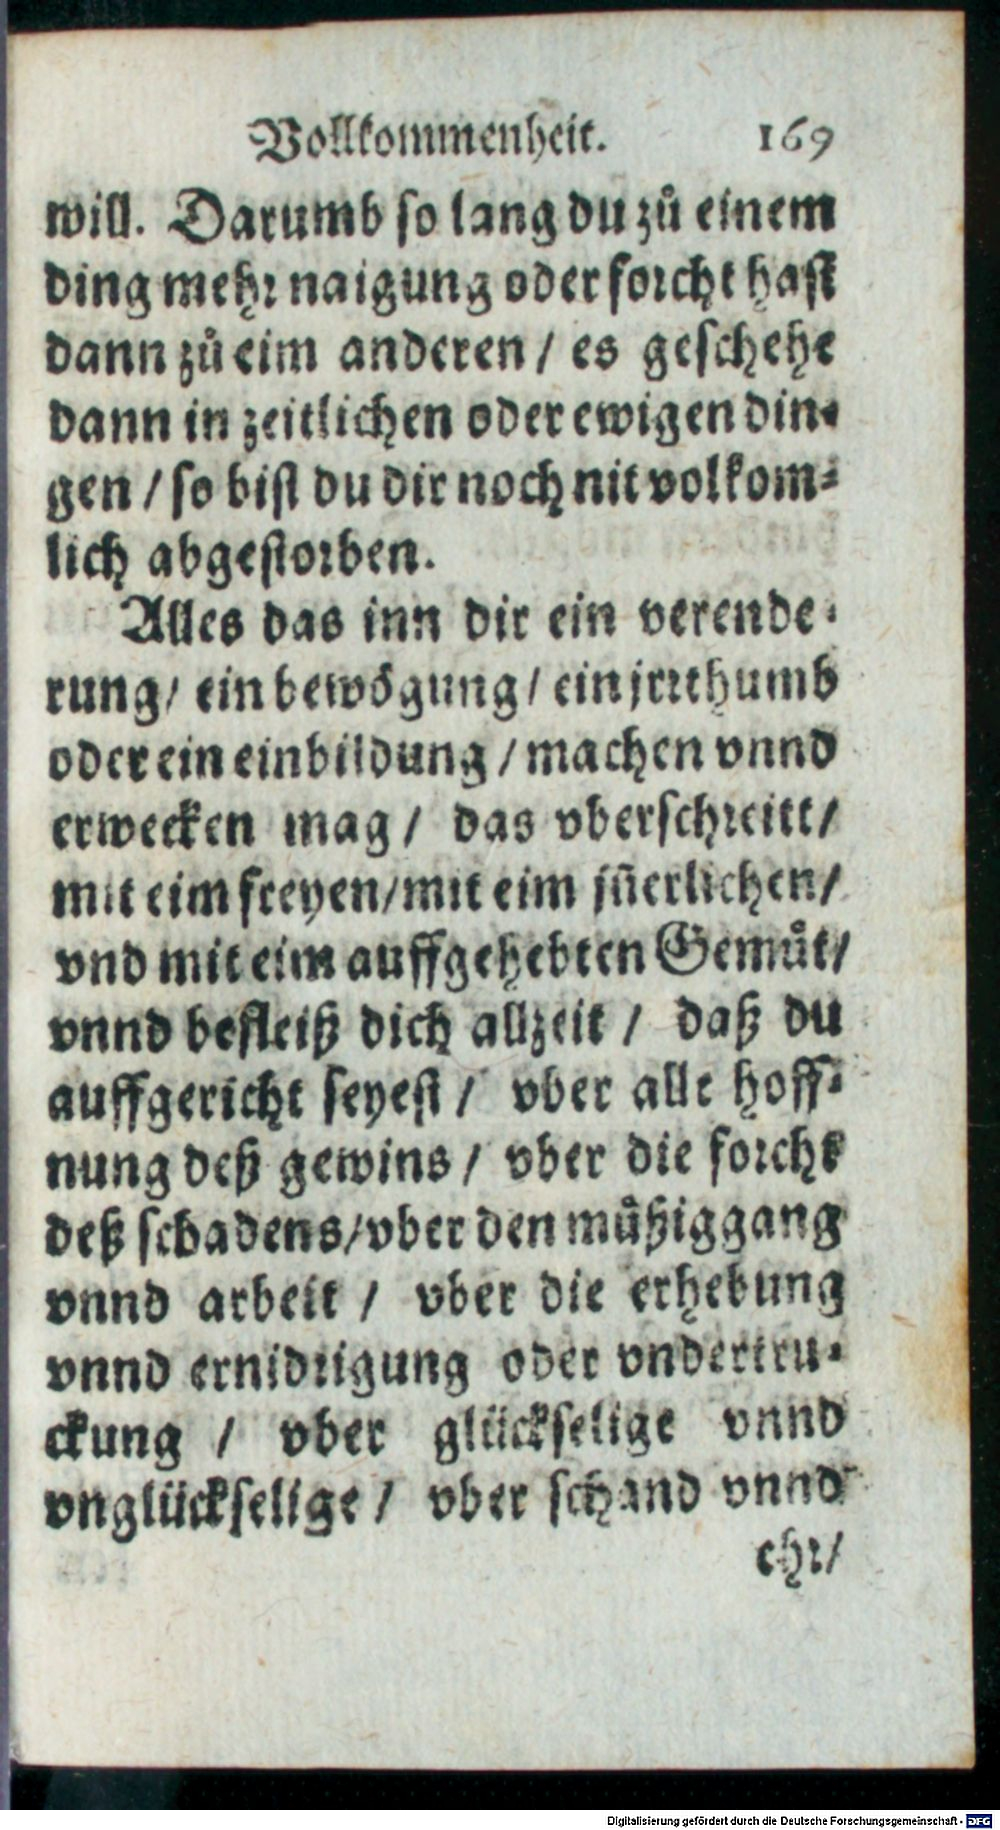 Vollkommenheit. 169
will. Darumb so lang du zů einem
ding mehr naigung oder forcht hast
dann zů eim anderen / es geschehe
dann in zeitlichen oder ewigen din-
gen / so bist du dir noch nit volkom-
lich abgestorben.
Alles das inn dir ein verende-
rung / ein bewögung / ein jrrthumb
oder ein einbildung / machen vnnd
erwecken mag / das vberschreitt /
mit eim freyen / mit eim jñerlichen /
vnd mit eim auffgehebten Gemůt /
vnnd befleiß dich allzeit / daß du
auffgericht seyest / vber alle hoff-
nung deß gewins / vber die forcht
deß schadens / vber den můßiggang
vnnd arbeit / vber die erhebung
vnnd ernidrigung oder vndertru-
ckung / vber glückselige vnnd
vnglückselige / vber schand vnnd
ehr /
Digitalisierung gefördert durch die Deutsche Forschungsgemeinschaft - DFG